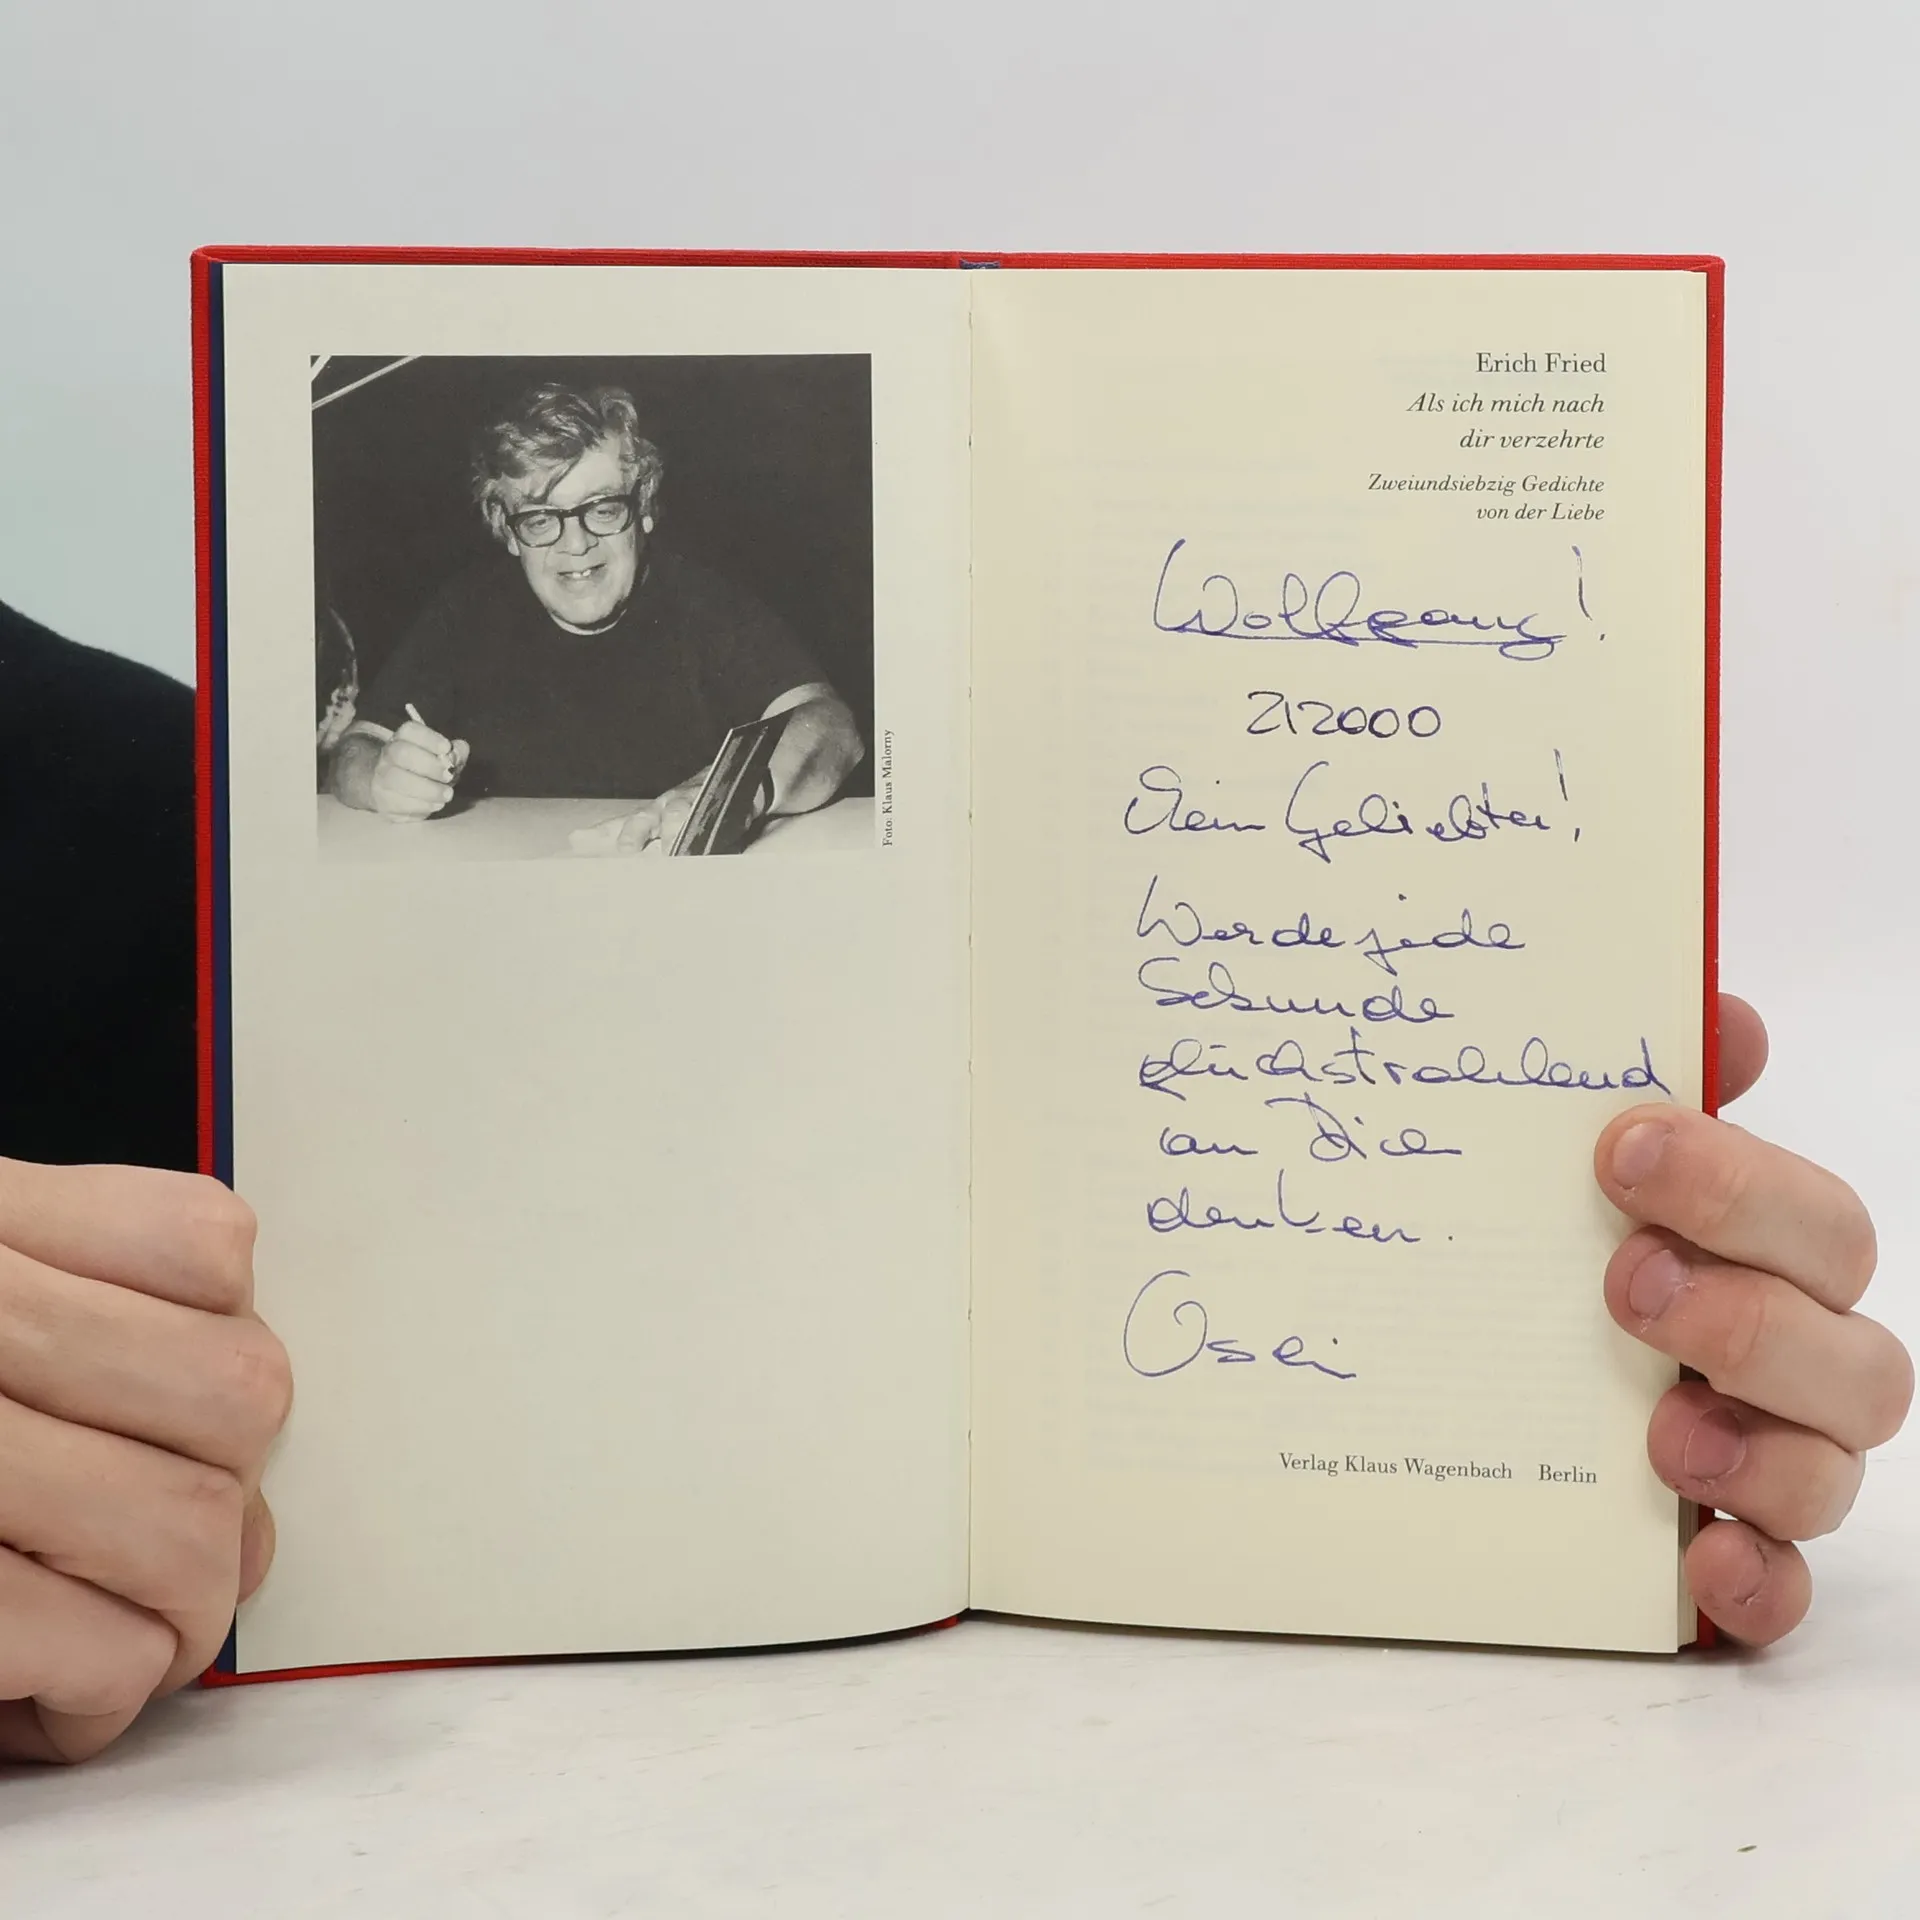 Foto: Klaus Malorny
Erich Fried
Als ich mich nach
dir verzehrte
Zweiundsiebzig Gedichte
von der Liebe
Wolfgang!
212000
Mein Geliebter!
Werde jede
Sekunde
glückstrahlend
an Dich
denken.
Osei
Verlag Klaus Wagenbach Berlin